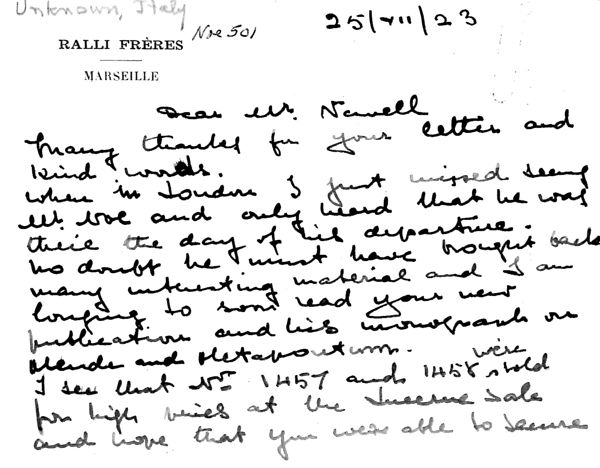 Unknown, Italy
25/VII/23
Noe 501
RALLI FRÈRES
MARSEILLE
Dear Mr. Newell
Many thanks for your letter and
kind words.
When in London I just missed seeing
Mr. Noe and only heard that he was
there the day of his departure.
No doubt he must have brought back
many interesting material and I am
longing to soon read your new
publication and his monograph on
Mende and Metapontum.
I see that Nos 1457 and 1458 were sold
for high prices at the Lucerne Sale
and hope that you were able to secure